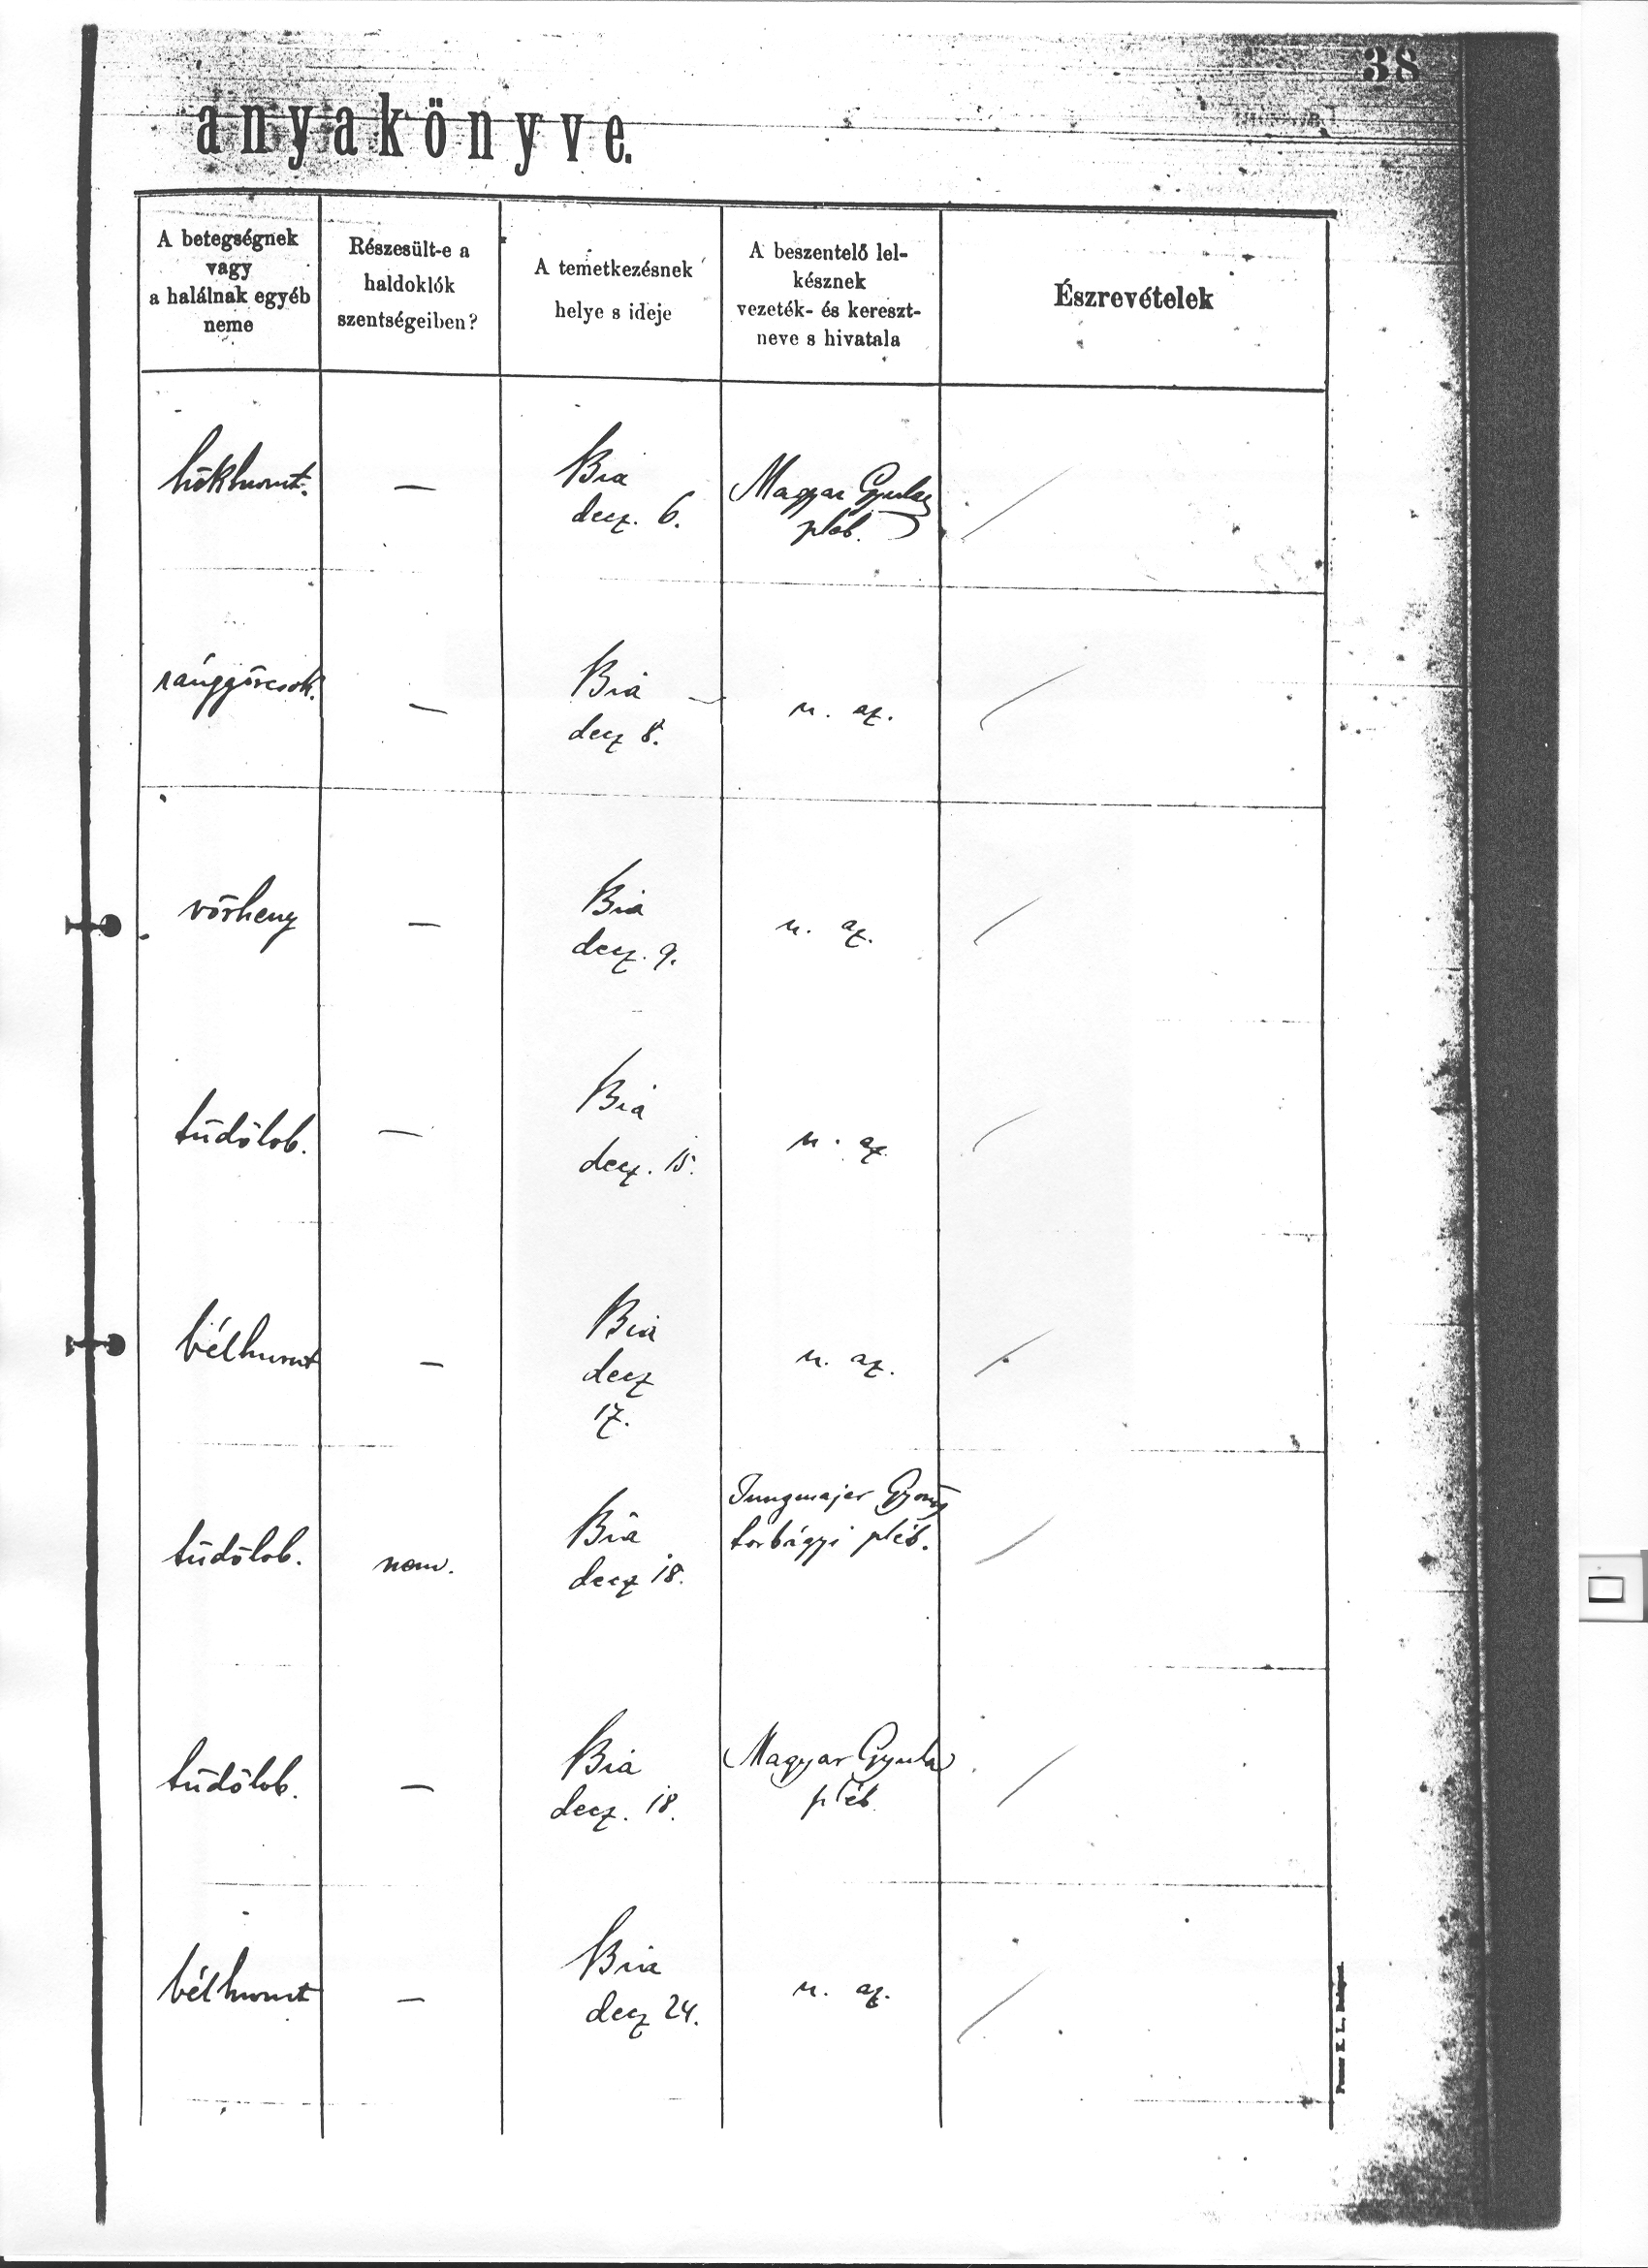 38
anyakönyve.
A betegségnek
vagy
a halálnak egyéb
neme
Részesült-e a
haldoklók
szentségeiben?
A temetkezésnek
helye s ideje
A beszentelő lel-
késznek
vezeték- és kereszt-
neve s hivatala
Észrevételek
hökhurut. — Bia
decz. 6.
Magyar Gyula
pléb.
ránggörcsök. — Bia
decz 8.
u. az.
vörheny — Bia
decz. 9.
u. az.
tüdőlob. — Bia
decz. 15.
u. az
bélhurut — Bia
decz
17.
u. az.
tüdőlob. nem. Bia
decz 18.
Jungmajer György
torbágyi pléb.
tüdőlob. — Bia
decz. 18.
Magyar Gyula
pléb
bélhurut — Bia
decz 24.
u. az.
Budapest